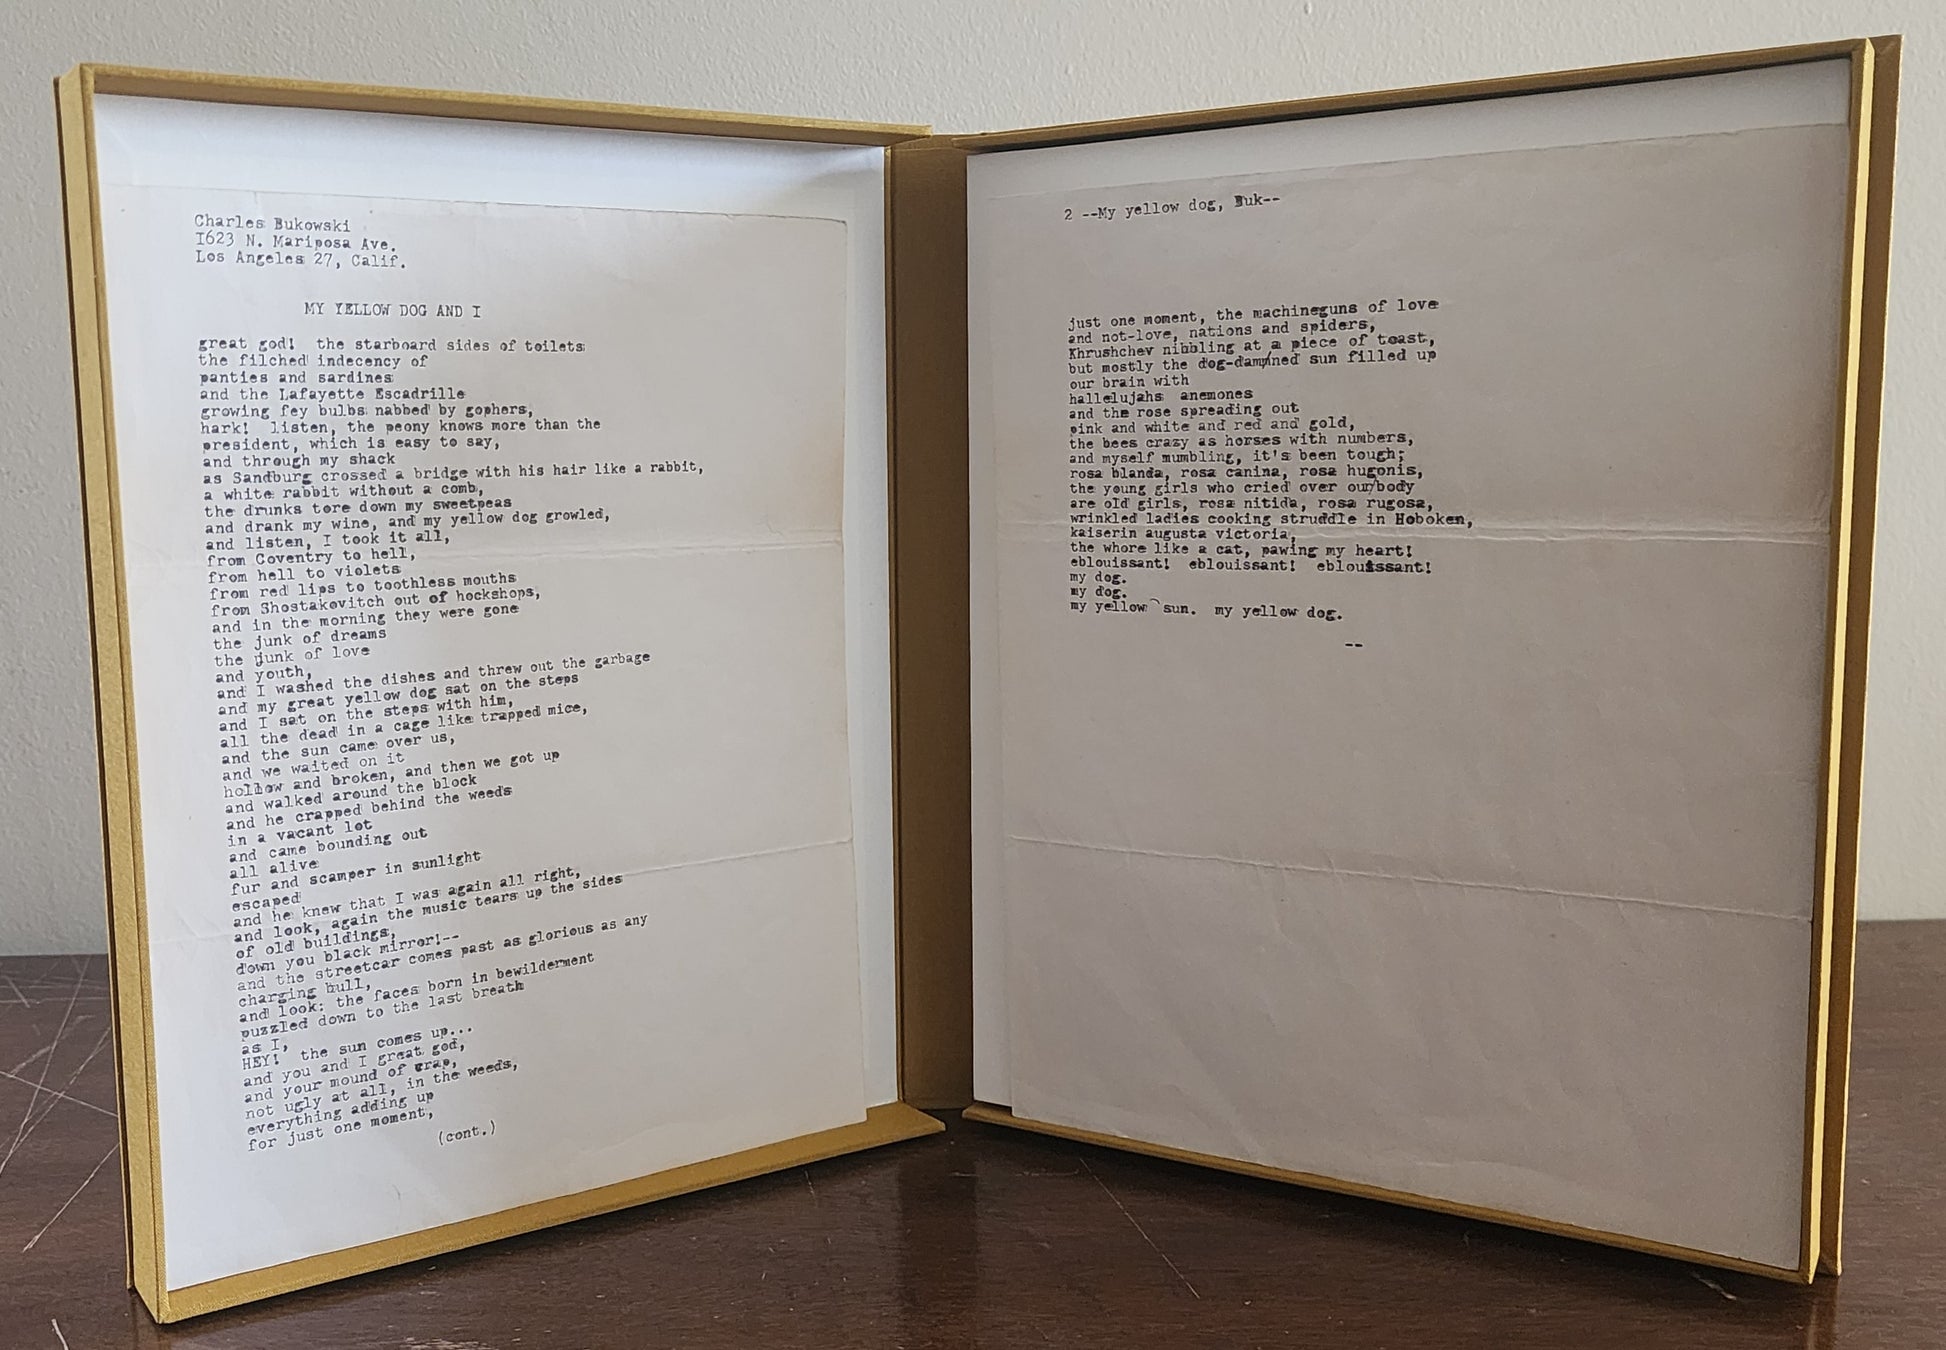 Charles Bukowski
1623 N. Mariposa Ave.
Los Angeles 27, Calif.
MY YELLOW DOG AND I
great god!  the starboard sides of toilets
the filched indecency of
panties and sardines
and the Lafayette Escadrille
growing fey bulbs nabbed by gophers,
hark!  listen, the peony knows more than the
president, which is easy to say,
and through my shack
as Sandburg crossed a bridge with his hair like a rabbit,
a white rabbit without a comb,
the drunks tore down my sweetpeas
and drank my wine, and my yellow dog growled,
and listen, I took it all,
from Coventry to hell,
from hell to violets
from red lips to toothless mouths
from Shostakovitch out of hockshops,
and in the morning they were gone
the junk of dreams
the junk of love
and youth,
and I washed the dishes and threw out the garbage
and my great yellow dog sat on the steps
and I sat on the steps with him,
all the dead in a cage like trapped mice,
and the sun came over us,
and we waited on it
hollow and broken, and then we got up
and walked around the block
and he crapped behind the weeds
in a vacant lot
and came bounding out
all alive
fur and scamper in sunlight
escaped
and he knew that I was again all right,
and look, again the music tears up the sides
of old buildings,
down you black mirror!--
and the streetcar comes past as glorious as any
charging bull,
and look: the faces born in bewilderment
puzzled down to the last breath
as I,
HEY!  the sun comes up...
and you and I great god,
and your mound of crap,
not ugly at all, in the weeds,
everything adding up
for just one moment,
(cont.)
2 --My yellow dog, Buk--
just one moment, the machineguns of love
and not-love, nations and spiders,
Khrushchev nibbling at a piece of toast,
but mostly the dog-damned sun filled up
our brain with
hallelujahs  anemones
and the rose spreading out
pink and white and red and gold,
the bees crazy as horses with numbers,
and myself mumbling, it's been tough;
rosa blanda, rosa canina, rosa hugonis,
the young girls who cried over our/body
are old girls, rosa nitida, rosa rugosa,
wrinkled ladies cooking struddle in Hoboken,
kaiserin augusta victoria,
the whore like a cat, pawing my heart!
eblouissant!  eblouissant!  eblouissant!
my dog.
my dog.
my yellow sun.  my yellow dog.
--